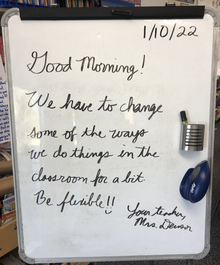 1/10/22
Good Morning!
We have to change
some of the ways
we do things in the
classroom for a bit.
Be flexible!!
Your teacher,
Mrs.